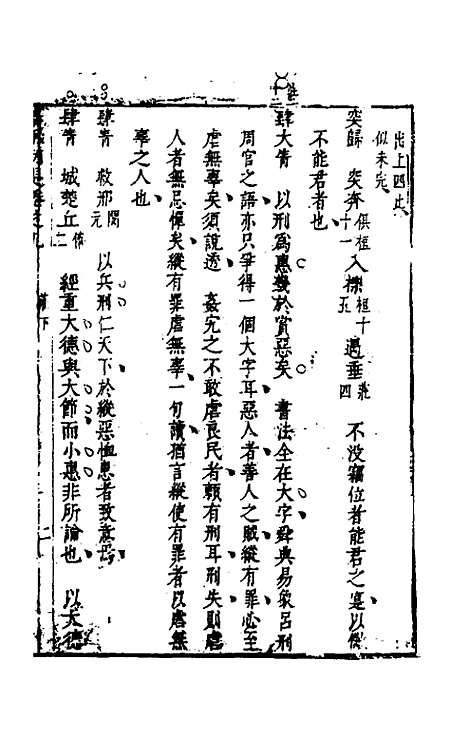 此上四此
似未完
突歸　突奔俱桓十一入櫟桓十五遇垂莊四　不没竊位者能君之寔以俟
不能君者也
肆大眚　以刑為惠幾於賞惡矣　書法全在大字舜典易象呂刑
周官之語亦只爭得一個大字耳惡人者善人之賊縱有罪必至
虐無辜矣須說透　姦宄之不敢虐良民者頼有刑耳刑失則虐
人者無忌憚矣縱有罪虐無辜一句讀猶言縱使有罪者以虐無
辜之人也
肆眚　救邢閔元　以兵刑仁天下於縱惡恤患者致意焉
肆眚　城楚丘僖二　經重大德與大節而小惠非所論也　以大德